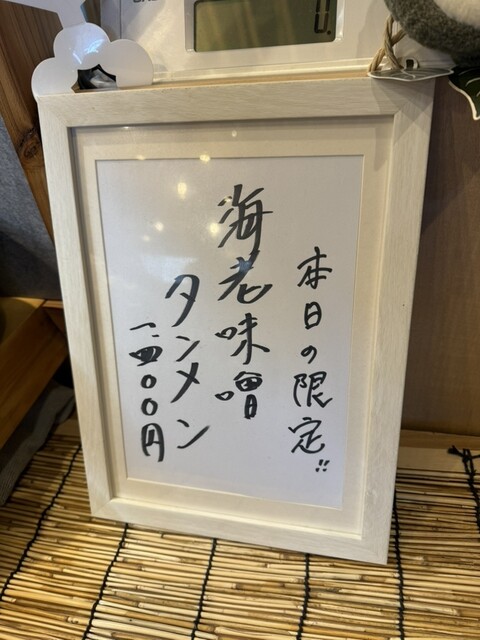 本日の限定!!
海老味噌
タンメン
一、四〇〇円
0.